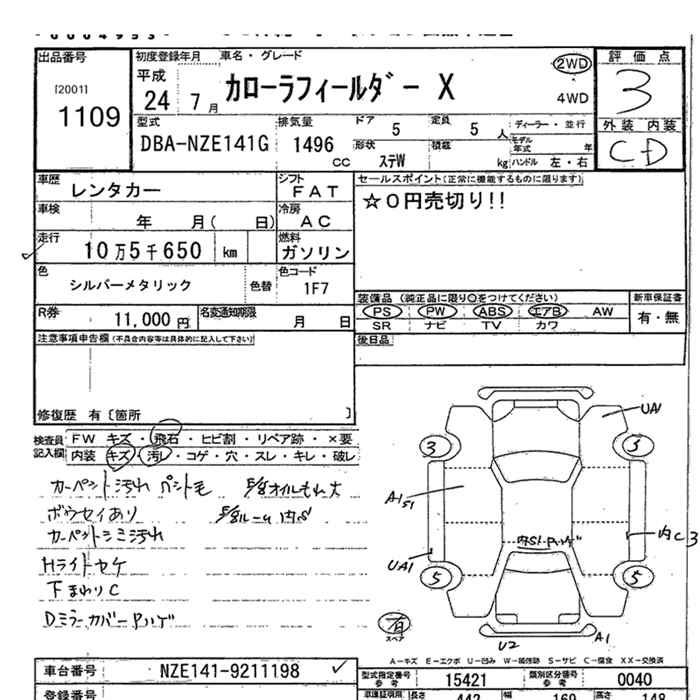 出品番号 初度登録年月 車名・グレード 評価点
平成 カローラフィールダー X 2WD 3
[2001] 24 7月 4WD
1109 型式 排気量 ドア 定員 ディーラー・並行 外装 内装
DBA-NZE141G 1496 cc 5 5人 モデル年式 年 C D
形状 ステW 積載 kg ハンドル 左・右
車歴 レンタカー シフト FAT セールスポイント(正常に機能するものに限ります)
車検 年 月( 日) 冷房 AC ☆0円売切り!!
走行 10万5千650 km 燃料 ガソリン
色 シルバーメタリック 色替 色コード 1F7
装備品 (純正品に限り○をつけてください) 新車保証書
R券 11,000円 名変通知期限 月 日 PS PW ABS エアB AW 有・無
SR ナビ TV カワ
注意事項申告欄(不具合内容等は具体的に記入して下さい) 後日品
修復歴 有〔箇所 〕
検査員記入欄 FW キズ・飛石・ヒビ割・リペア跡・×要
内装 キズ・汚レ・コゲ・穴・スレ・キレ・破レ
カーペット汚れ
ボウセイあり
カーペットシミ汚れ
Hライトヤケ
下まわりC
Dミラーカバー
UA1
3 3
A1
UA1
5 5
有
スペア
U2 A1
A-キズ E-エクボ U-凹み W-補修跡 S-サビ C-腐食 XX-交換済
車台番号 NZE141-9211198 型式指定番号 参考 15421 類別区分番号 参考 0040
登録番号 長さ 442 幅 169 高さ 148